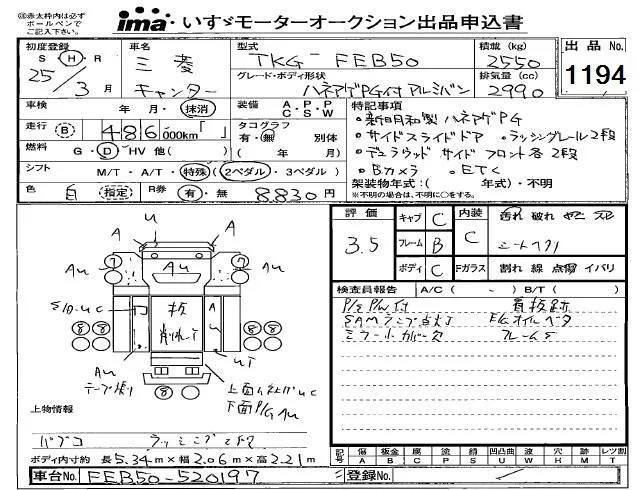 ※赤太枠内は必ず
ボールペンで
ご記入下さい。
ima・いすゞモーターオークション出品申込書
初度登録 S H R 25年 3月
車名 三菱 キャンター
型式 TKG-FEB50
積載(kg) 2550
出品No. 1194
グレード・ボディ形状 ハネアゲPG付 アルミバン
排気量(cc) 2990
車検 年・月・抹消
装備 A・P・P C・S・W
特記事項
走行 B 486,000km「 」
タコグラフ 有・無 別体 ( 年 月)
・新日明和製 ハネアゲPG
・サイドスライドドア ・ラッシングレール2段
燃料 G・D・HV 他( )
・デュラウッド サイド フロント各2段
シフト M/T・A/T・特殊(2ペダル・3ペダル)
・Bカメラ ・ETC
色 白 指定
R券 有・無 8,830円
架装物年式:( 年式)・不明
※不明の場合は、不明に○をする。
評価 3.5
キャブ C
フレーム B
ボディ C
内装 C
汚れ 破れ
シートヘタリ
Fガラス 割れ 線 点傷 イバリ
検査員報告 A/C( - ) B/T( )
P/S P/W付 看板跡
SAMランプ点灯 E/Gオイルベタ
ミラー小カバー欠
u
A
A
7
7
Au
Au
Au
板
A
u
8 8
8 8
uT
Au
テープ張り
8
下面P/G Au
上物情報
パブコ
ボディ内寸約 長5.34m×幅2.06m×高2.21m
記号 傷 A 板金 B 腐 C 塗 P 錆 S 凹凸曲 U 波 W 穴 H 跡 M 欠 T レツ割
車台No. FEB50-520197
登録No.